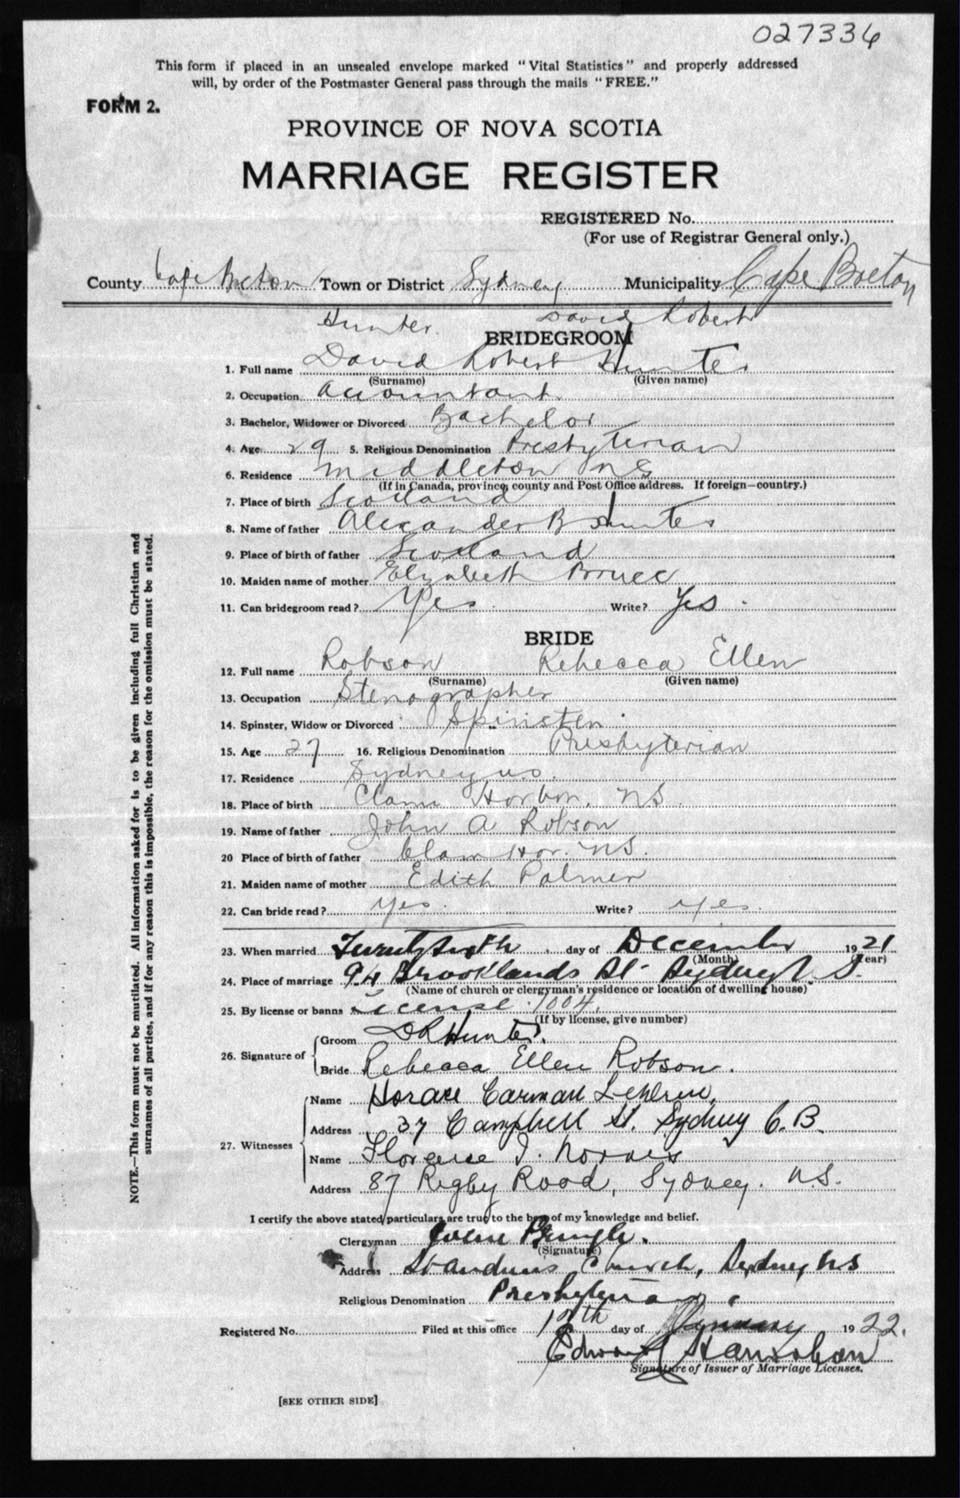 027336
This form if placed in an unsealed envelope marked "Vital Statistics" and properly addressed
will, by order of the Postmaster General pass through the mails "FREE."
FORM 2.
PROVINCE OF NOVA SCOTIA
MARRIAGE REGISTER
REGISTERED No.
(For use of Registrar General only.)
County Cape Breton Town or District Sydney Municipality Cape Breton
Hunter David Robert
BRIDEGROOM
1. Full name David Robert Hunter
(Surname) (Given name)
2. Occupation Accountant
3. Bachelor, Widower or Divorced Bachelor
4. Age 29 5. Religious Denomination Presbyterian
6. Residence Middleton NS
(If in Canada, province, county and Post Office address. If foreign—country.)
7. Place of birth Scotland
8. Name of father Alexander B Hunter
9. Place of birth of father Scotland
10. Maiden name of mother Elizabeth Bruce
11. Can bridegroom read? Yes Write? Yes
BRIDE
12. Full name Robson Rebecca Ellen
(Surname) (Given name)
13. Occupation Stenographer
14. Spinster, Widow or Divorced Spinster
15. Age 27 16. Religious Denomination Presbyterian
17. Residence Sydney NS
18. Place of birth Clam Harbor, NS
19. Name of father John A Robson
20 Place of birth of father Clam Hor. NS.
21. Maiden name of mother Edith Palmer
22. Can bride read? yes Write? yes
23. When married Twenty Sixth day of December 1921
(Month) (Year)
24. Place of marriage 94 Brooklands St. Sydney N. S.
(Name of church or clergyman's residence or location of dwelling house)
25. By license or banns License 1004
(If by license, give number)
26. Signature of
Groom D R Hunter.
Bride Rebecca Ellen Robson.
27. Witnesses
Name Horace Carman
Address 37 Campbell St. Sydney C.B.
Name Florence I. Norris
Address 87 Rigby Road, Sydney. N.S.
I certify the above stated particulars are true to the best of my knowledge and belief.
Clergyman Pringle.
(Signature)
Address St Andrews Church, Sydney NS
Religious Denomination Presbyterian
Registered No. Filed at this office day of January 1922.
Edward
Signature of Issuer of Marriage Licenses.
[SEE OTHER SIDE]
NOTE.—This form must not be mutilated. All information asked for is to be given including full Christian and
surnames of all parties, and if for any reason this is impossible, the reason for the omission must be stated.